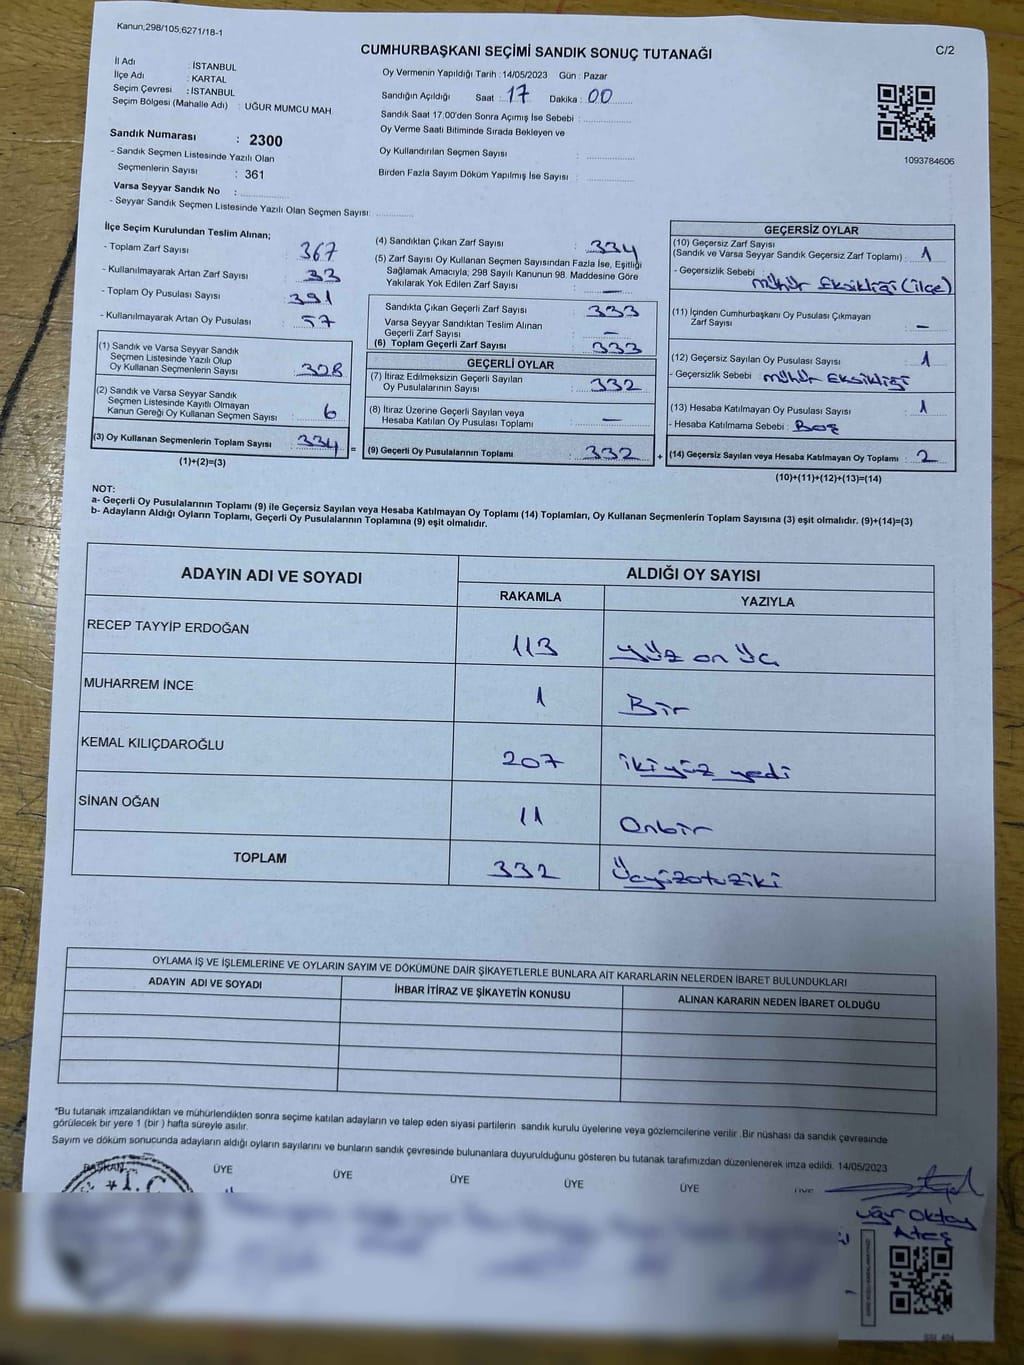 Kanun,298/105,6271/18-1
C/2
CUMHURBAŞKANI SEÇİMİ SANDIK SONUÇ TUTANAĞI
İl Adı : İSTANBUL
İlçe Adı : KARTAL
Seçim Çevresi : İSTANBUL
Seçim Bölgesi (Mahalle Adı) : UĞUR MUMCU MAH.
Sandık Numarası : 2300
- Sandık Seçmen Listesinde Yazılı Olan
Seçmenlerin Sayısı : 361
Varsa Seyyar Sandık No :
- Seyyar Sandık Seçmen Listesinde Yazılı Olan Seçmen Sayısı:
Oy Vermenin Yapıldığı Tarih : 14/05/2023 Gün : Pazar
Sandığın Açıldığı Saat : 17 Dakika : 00
Sandık Saat 17.00'den Sonra Açımış İse Sebebi :
Oy Verme Saati Bitiminde Sırada Bekleyen ve
Oy Kullandırılan Seçmen Sayısı :
Birden Fazla Sayım Döküm Yapılmış İse Sayısı :
1093784606
İlçe Seçim Kurulundan Teslim Alınan;
- Toplam Zarf Sayısı : 367
- Kullanılmayarak Artan Zarf Sayısı : 33
- Toplam Oy Pusulası Sayısı : 391
- Kullanılmayarak Artan Oy Pusulası : 57
(1) Sandık ve Varsa Seyyar Sandık
Seçmen Listesinde Yazılı Olup
Oy Kullanan Seçmenlerin Sayısı : 328
(2) Sandık ve Varsa Seyyar Sandık
Seçmen Listesinde Kayıtlı Olmayan
Kanun Gereği Oy Kullanan Seçmen Sayısı : 6
(3) Oy Kullanan Seçmenlerin Toplam Sayısı : 334 =
(1)+(2)=(3)
(4) Sandıktan Çıkan Zarf Sayısı : 334
(5) Zarf Sayısı Oy Kullanan Seçmen Sayısından Fazla İse, Eşitliği
Sağlamak Amacıyla; 298 Sayılı Kanunun 98. Maddesine Göre
Yakılarak Yok Edilen Zarf Sayısı : —
Sandıkta Çıkan Geçerli Zarf Sayısı : 333
Varsa Seyyar Sandıktan Teslim Alınan
Geçerli Zarf Sayısı : —
(6) Toplam Geçerli Zarf Sayısı : 333
GEÇERLİ OYLAR
(7) İtiraz Edilmeksizin Geçerli Sayılan
Oy Pusulalarının Sayısı : 332
(8) İtiraz Üzerine Geçerli Sayılan veya
Hesaba Katılan Oy Pusulası Toplamı : —
(9) Geçerli Oy Pusulalarının Toplamı : 332 +
GEÇERSİZ OYLAR
(10) Geçersiz Zarf Sayısı
(Sandık ve Varsa Seyyar Sandık Geçersiz Zarf Toplamı) : 1
- Geçersizlik Sebebi : mühür Eksikliği (ilçe)
(11) İçinden Cumhurbaşkanı Oy Pusulası Çıkmayan
Zarf Sayısı : —
(12) Geçersiz Sayılan Oy Pusulası Sayısı : 1
- Geçersizlik Sebebi : mühür Eksikliği
(13) Hesaba Katılmayan Oy Pusulası Sayısı : 1
- Hesaba Katılmama Sebebi : Boş
(14) Geçersiz Sayılan veya Hesaba Katılmayan Oy Toplamı : 2
(10)+(11)+(12)+(13)=(14)
NOT:
a- Geçerli Oy Pusulalarının Toplamı (9) ile Geçersiz Sayılan veya Hesaba Katılmayan Oy Toplamı (14) Toplamları, Oy Kullanan Seçmenlerin Toplam Sayısına (3) eşit olmalıdır. (9)+(14)=(3)
b- Adayların Aldığı Oyların Toplamı, Geçerli Oy Pusulalarının Toplamına (9) eşit olmalıdır.
ADAYIN ADI VE SOYADI
ALDIĞI OY SAYISI
RAKAMLA YAZIYLA
RECEP TAYYİP ERDOĞAN 113 yüz on üç
MUHARREM İNCE 1 Bir
KEMAL KILIÇDAROĞLU 207 iki yüz yedi
SİNAN OĞAN 11 Onbir
TOPLAM 332 Üçyüzotuziki
OYLAMA İŞ VE İŞLEMLERİNE VE OYLARIN SAYIM VE DÖKÜMÜNE DAİR ŞİKAYETLERLE BUNLARA AİT KARARLARIN NELERDEN İBARET BULUNDUKLARI
ADAYIN ADI VE SOYADI İHBAR İTİRAZ VE ŞİKAYETİN KONUSU ALINAN KARARIN NEDEN İBARET OLDUĞU
*Bu tutanak imzalandıktan ve mühürlendikten sonra seçime katılan adayların ve talep eden siyasi partilerin sandık kurulu üyelerine veya gözlemcilerine verilir .Bir nüshası da sandık çevresinde
görülecek bir yere 1 (bir ) hafta süreyle asılır.
Sayım ve döküm sonucunda adayların aldığı oyların sayılarını ve bunların sandık çevresinde bulunanlara duyurulduğunu gösteren bu tutanak tarafımızdan düzenlenerek imza edildi. 14/05/2023
BAŞKAN ÜYE ÜYE ÜYE ÜYE ÜYE ÜYE
T.C.
Uğur Oktay
Ateş